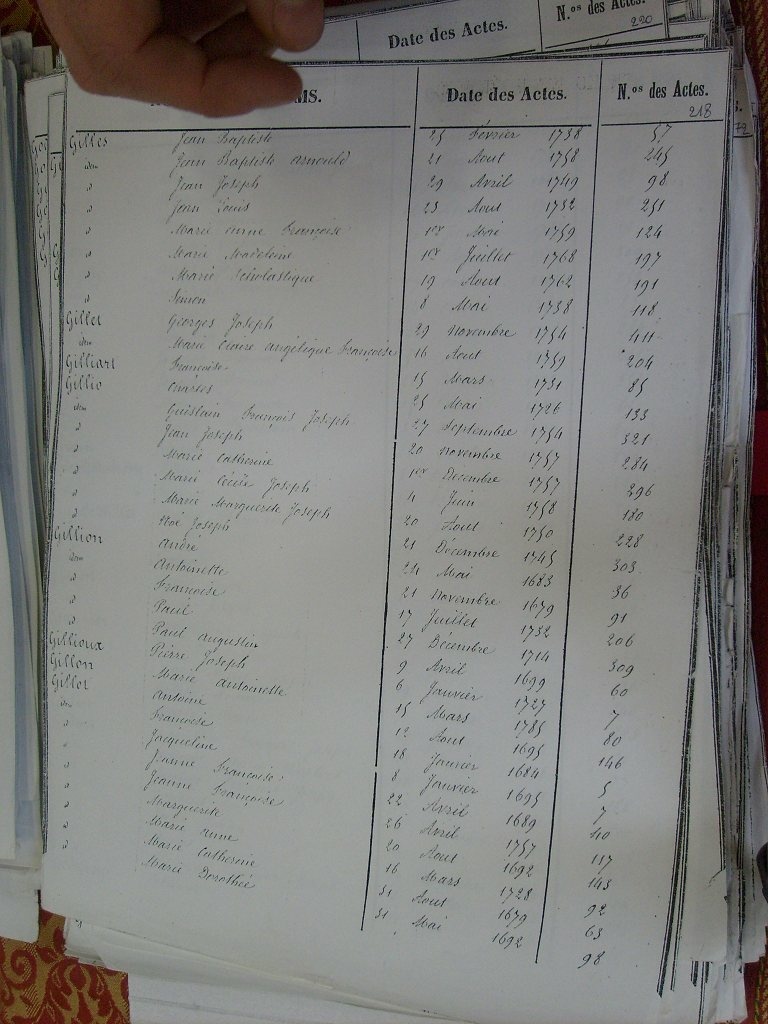 N.os des Actes.
220
Date des Actes.
MS. Date des Actes. N.os des Actes.
218
Gilles Jean Baptiste 25 Février 1738 57
idem Jean Baptiste Arnould 21 Aout 1758 245
id Jean Joseph 29 Avril 1749 98
id Jean Louis 23 Aout 1732 251
id Marie Anne Françoise 1er Mai 1759 124
id Marie Madeleine 1er Juillet 1768 197
id Marie Scholastique 19 Aout 1762 191
id Simon 8 Mai 1738 118
Gillet Georges Joseph 29 Novembre 1754 411
idem Marie Claire Angélique Françoise 16 Aout 1759 204
Gilliart Françoise 15 Mars 1731 85
Gillio Charles 25 Mai 1726 133
idem Guislain François Joseph 27 Septembre 1754 321
id Jean Joseph 20 Novembre 1757 284
id Marie Catherine 1er Décembre 1757 296
id Marie Cécile Joseph 4 Juin 1758 180
id Marie Marguerite Joseph 20 Aout 1750 228
id Noé Joseph 21 Décembre 1745 303
Gillion André 24 Mai 1683 36
idem Antoinette 21 Novembre 1679 91
id Françoise 17 Juillet 1732 206
id Paul 27 Décembre 1714 309
id Paul Augustin 9 Avril 1699 60
id Pierre Joseph 6 Janvier 1727 7
Gillioux Marie Antoinette 15 Mars 1785 80
Gillon Antoine 12 Aout 1695 146
Gillot Françoise 18 Janvier 1684 5
idem Jacqueline 8 Janvier 1695 7
id Jeanne Françoise 22 Avril 1689 40
id Jeanne Françoise 26 Avril 1757 117
id Marguerite 20 Aout 1692 143
id Marie Anne 16 Mars 1728 92
id Marie Catherine 31 Aout 1679 63
id Marie Dorothée 31 Mai 1692 98